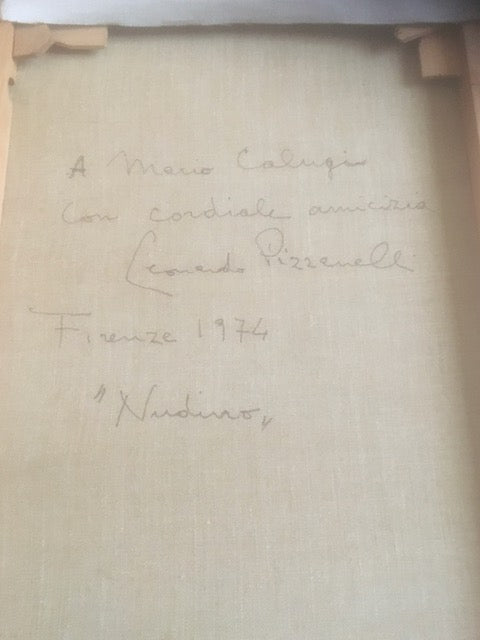 A Mario Calugi
Con cordiale amicizia
Leonardo Pizzanelli
Firenze 1974
"Nudino"